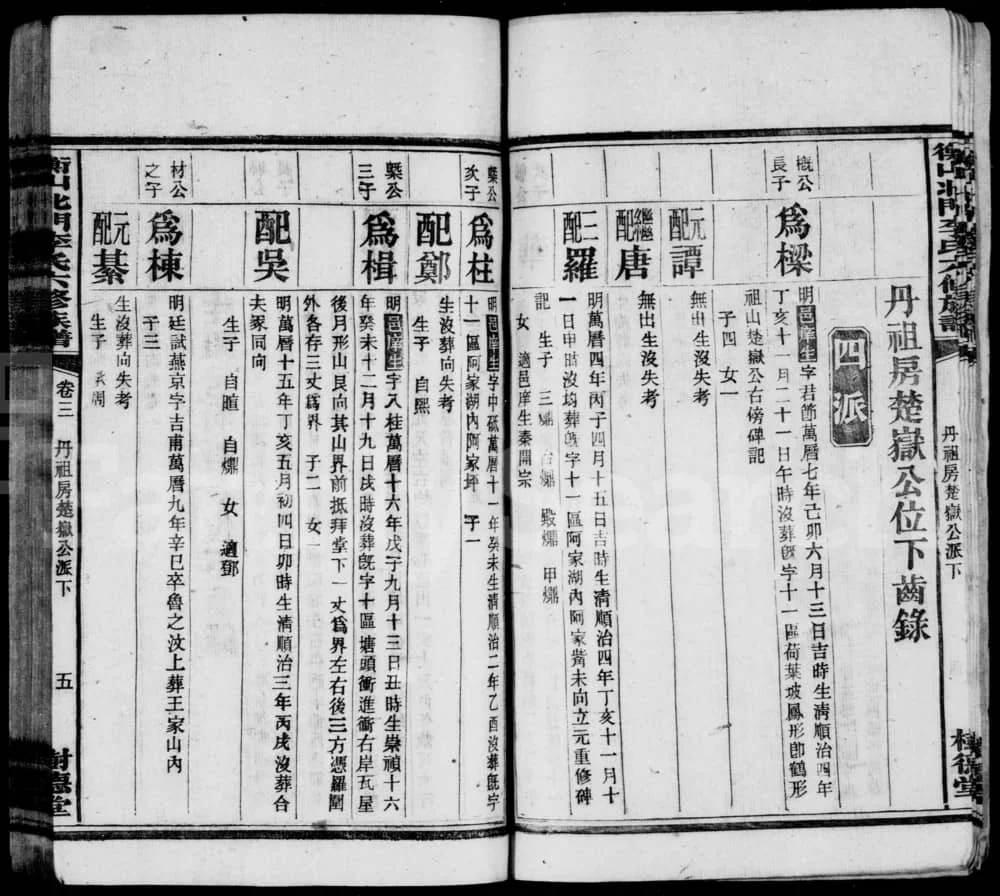 丹祖房楚嶽公派下
丹祖房楚嶽公位下齒錄
四派
概公
長子
爲樑
明邑庠生字君節萬曆七年己卯六月十三日吉時生清順治四年
丁亥十一月二十一日午時沒葬旣字十一區荷葉坡鳳形卽鶴形
祖山楚嶽公右傍碑記
子四 女一
元配譚
無出生沒失考
繼配唐
無出生沒失考
三配羅
明萬曆四年丙子四月十五日吉時生清順治四年丁亥十一月十
一日甲時沒塢葬旣字十一區阿家湖內阿家嵴未向立元重修碑
記 生子 三爛 台爛 毀爛 甲爛
女 適邑庠生秦開宗
槩公
次子
爲柱
明邑庠生字中砥萬曆十一年癸未生清順治二年乙酉沒葬旣字
十一區阿家湖內阿家坪 子一
配鄭
生沒葬向失考
生子 自熙
槩公
三子
爲楫
明邑庠生字入桂萬曆十六年戊子九月十三日丑時生崇禎十六
年癸未十二月十九日戌時沒葬旣字十區塘頭衝進衝右岸瓦屋
後月形山艮向其山界前抵拜堂下一丈爲界左右後三方憑羅圍
外各存三丈爲界 子二 女一
配吳
明萬曆十五年丁亥五月初四日卯時生清順治三年丙戌沒葬合
夫冢同向
生子 自暄 自爛 女 適鄧
材公
之子
爲棟
明廷試燕京字吉甫萬曆九年辛巳卒魯之汶上葬王家山內
子三
元配綦
生沒葬向失考
生子
衡山北門李氏六修族譜
卷三
丹祖房楚嶽公派下
五
樹德堂